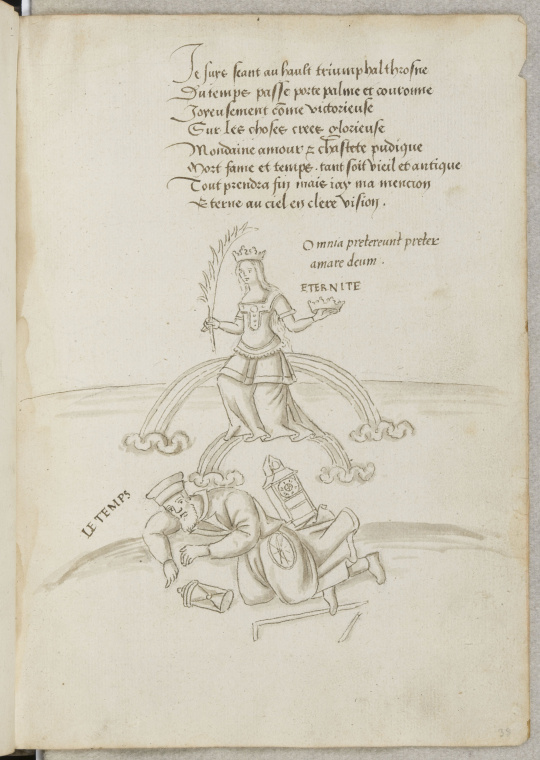 Je suys seant au hault triumphal throsne
Du temps passe porte palme et couronne
Joyeusement cōme victorieuse
Sur les choses crees glorieuse
Mondaine amour & chastete pudique
Mort fame et temps . tant soit vieil et antique
Tout prendra fin mais iay ma mencion
Eterne au ciel en clere vision .
Omnia pretereunt preter
amare deum .
ETERNITE
LE TEMPS
39